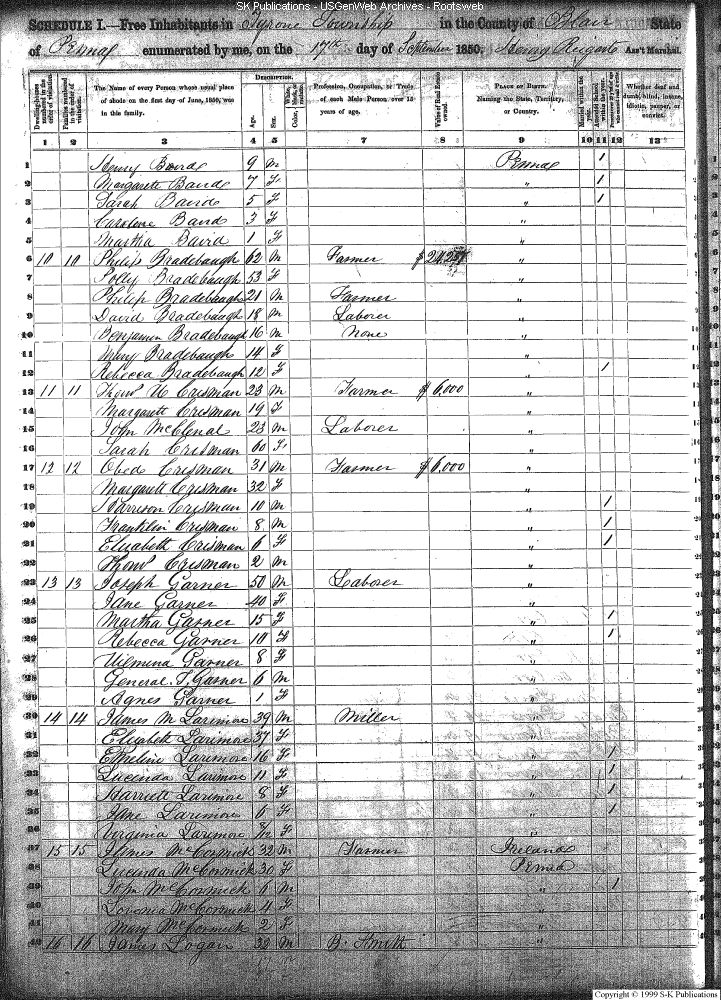 SK Publications - USGenWeb Archives - Rootsweb
SCHEDULE I.—Free Inhabitants in Tyrone Township in the County of Blair State
of Penna enumerated by me, on the 17th day of September 1850. Henry Ass't Marshal.
Dwelling-houses numbered in the order of visitation.
Families numbered in the order of visitation.
The Name of every Person whose usual place of abode on the first day of June, 1850, was in this family.
DESCRIPTION.
Age.
Sex.
Color,
Profession, Occupation, or Trade of each Male Person over 15 years of age.
Value of Real Estate owned.
PLACE OF BIRTH. Naming the State, Territory, or Country.
Married within the year.
Attended School within the year.
Whether deaf and dumb, blind, insane, idiotic, pauper, or convict.
1 2 3 4 5 6 7 8 9 10 11 12 13
1 Henry Baird 9 M Penna 1
2 Margarett Baird 7 F " 1
3 Sarah Baird 5 F " 1
4 Caroline Baird 3 F "
5 Martha Baird 1 F "
6 10 10 Philip Bradebaugh 62 M Farmer $ "
7 Polly Bradebaugh 53 F "
8 Philip Bradebaugh 21 M Farmer "
9 David Bradebaugh 18 M Laborer "
10 Benjamen Bradebaugh 16 M None "
11 Mary Bradebaugh 14 F "
12 Rebecca Bradebaugh 12 F " 1
13 11 11 Thos U Crisman 23 M Farmer $ 6,000 "
14 Margarett Crisman 19 F "
15 John McClenal 23 M Laborer "
16 Sarah Crisman 60 F "
17 12 12 Obed Crisman 31 M Farmer $ 6,000 "
18 Margarett Crisman 32 F "
19 Harrison Crisman 10 M " 1
20 Franklin Crisman 8 M " 1
21 Elizabeth Crisman 6 F " 1
22 Thos Crisman 2 M "
23 13 13 Joseph Garner 50 M Laborer "
24 Jane Garner 40 F "
25 Martha Garner 15 F " 1
26 Rebecca Garner 10 F " 1
27 Wilmina Garner 8 F "
28 General. T. Garner 6 M "
29 Agnes Garner 1 F "
30 14 14 James M Larimore 39 M Miller "
31 Elizabeth Larimore 37 F "
32 Larimore 16 F " 1
33 Lucinda Larimore 11 F " 1
34 Harriett Larimore 8 F " 1
35 Jane Larimore 6 F " 1
36 Virginia Larimore F "
37 15 15 James McCormick 32 M Farmer Ireland
38 Lucinda McCormick 30 F Penna
39 John McCormick 6 M " 1
40 McCormick 4 F "
41 Mary McCormick 2 F "
42 16 16 James Logan 32 M B. Smith "
Copyright © 1999 S-K Publications